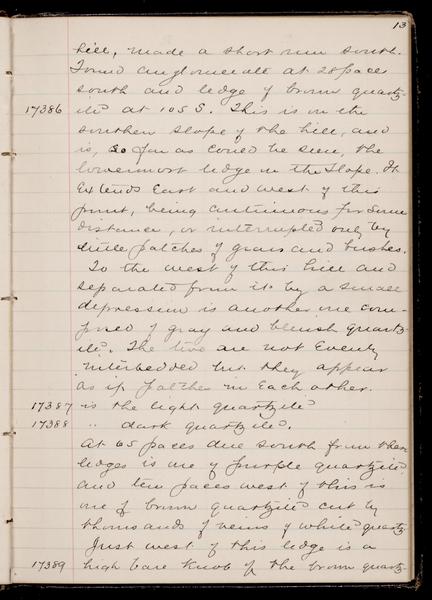 13
hill, made a short run south.
Found conglomerate at 28 paces
south and ledge of brown quartz-
17386 ite at 105 S. This is on the
southern slope of the hill, and
is, so far as could be seen, the
lowermost ledge in the slope. It
Extends East and west of this
point, being continuous for some
distance, or interrupted only by
little patches of grass and bushes.
To the west of this hill and
separated from it by a small
depression is another one com-
posed of gray and bluish quartz-
ite. The two are not Evenly
interbedded but they appear
as if patches in Each other.
17387 is the light quartzite
17388 " dark quartzite.
At 65 paces due south from these
ledges is one of purple quartzite
and ten paces west of this is
one of brown quartzite cut by
thousands of veins of white quartz
Just west of this ledge is a
17389 high bare knob of the brown quartz-